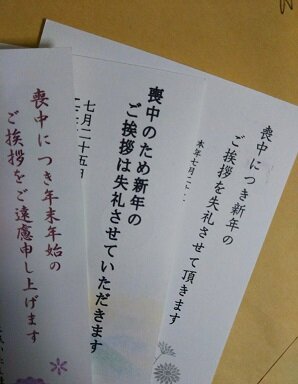 喪中につき新年の
ご挨拶を失礼させて頂きます
本年七月二
喪中のため新年の
ご挨拶は失礼させていただきます
七月二十五日
喪中につき年末年始の
ご挨拶をご遠慮申し上げます